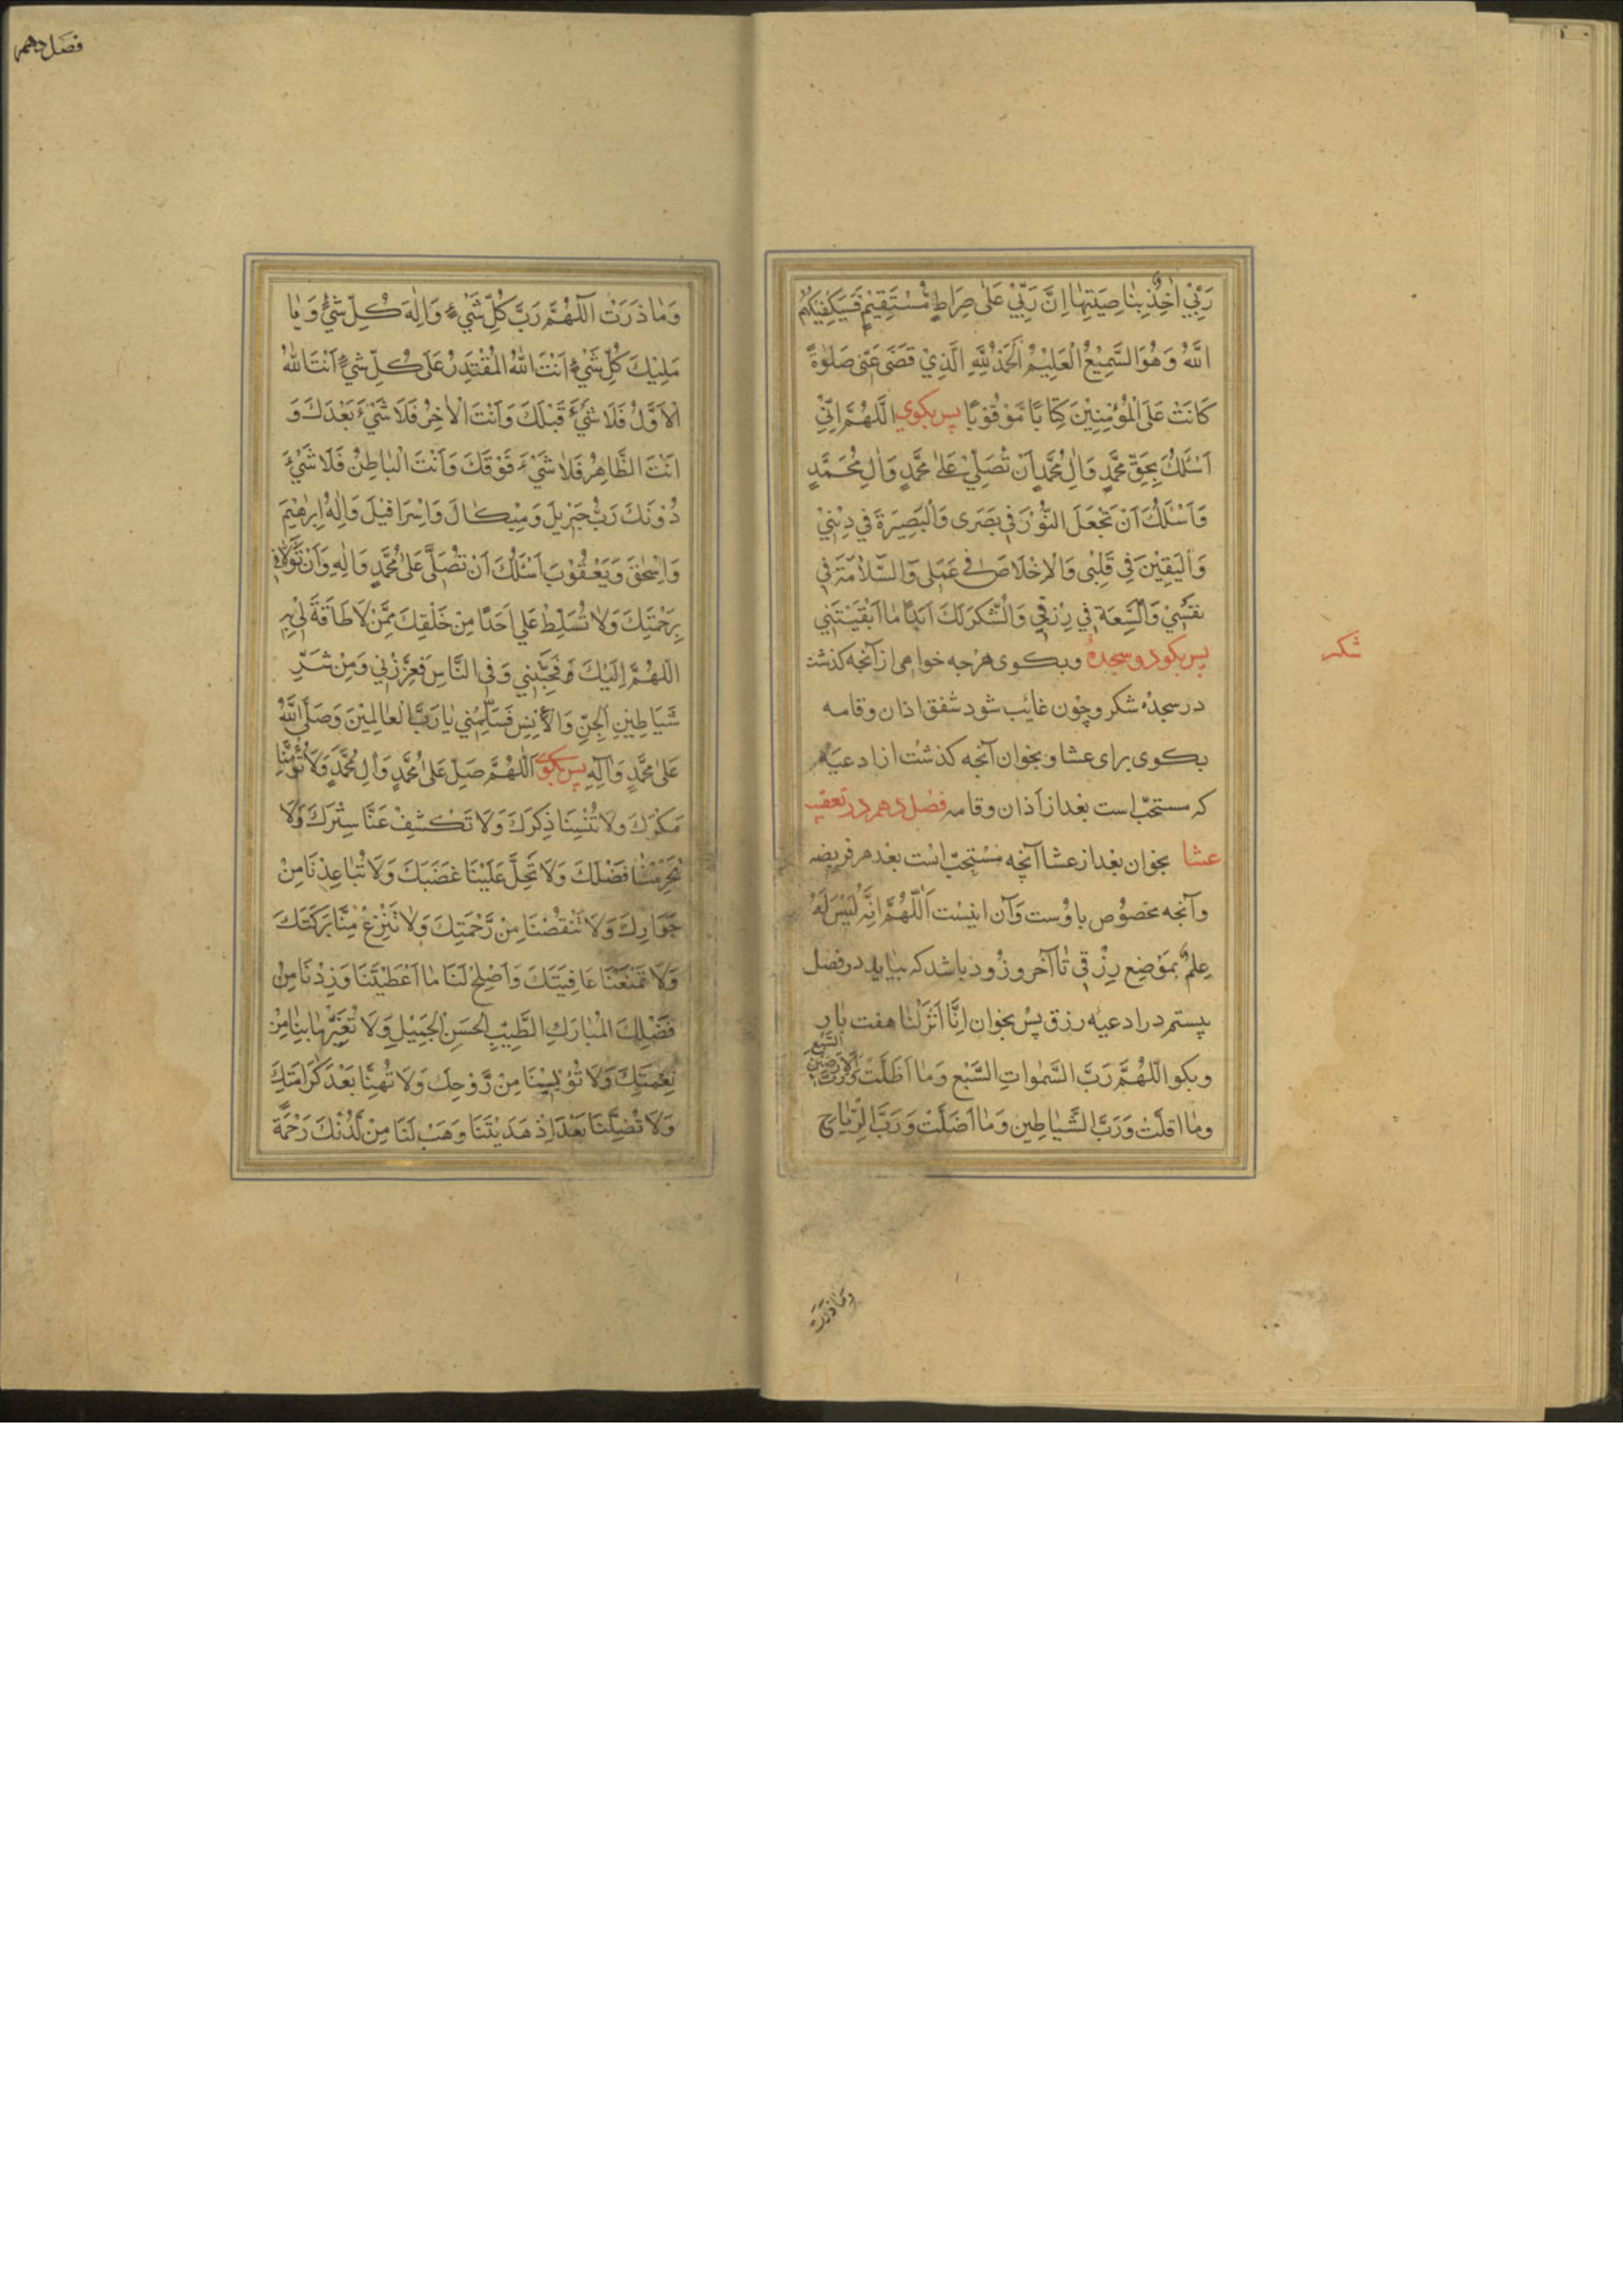 رَبِّيْ اٰخِذٌ بِنٰاصِيَتِهٰا اِنَّ رَبِّيْ عَلٰى صِرَاطٍ مُّسْتَقِيْمٍ فَسَيَكْفِيْكَهُمُ
اللّٰهُ وَهُوَ السَّمِيْعُ الْعَلِيْمُ اَلْحَمْدُ لِلّٰهِ الَّذِيْ قَضٰى عَنّى صَلٰوةً
كَانَتْ عَلَى الْمُؤْمِنِيْنَ كِتَابًا مَّوْقُوْتًا پس بكوى اللّٰهُمَّ اِنِّيْ
اَسْئَلُكَ بِحَقِّ مُحَمَّدٍ وَاٰلِ مُحَمَّدٍ اَنْ تُصَلِّيْ عَلٰى مُحَمَّدٍ وَاٰلِ مُحَمَّدٍ
وَاَسْئَلُكَ اَنْ تَجْعَلَ النُّوْرَ فِيْ بَصَرى وَالْبَصِيْرَةَ فِي دِيْنِيْ
وَالْيَقِيْنَ فِي قَلْبِى وَالْاِخْلَاصَ فِى عَمَلى وَالسَّلَامَةَ فِي
نَفْسِيْ وَالسَّعَةَ فِي رِزْقِي وَالشُّكْرَ لَكَ اَبَدًا مٰا اَبْقَيْتَنِي
پس بكو دو سجده وبكوى هرجه خواهى از آنجه كذشت
در سجدهٔ شكر وچون غائب شود شفق اذان وقامه
بكوى براى عشا وبخوان آنجه كذشت از ادعيهٔ
كه مستحبّ است بعد از آذان وقامه فصل دهم در تعقيب
عشا بخوان بعد از عشا آنچه مستحبّ است بعد هر فريضه
وآنجه مخصوص باوست وآن اينست اَللّٰهُمَّ اِنَّهُ لَيْسَ لَهُ
عِلْمٌ بِمَوْضِعِ رِزْقِي تٰا آخر وزود باشد كه بيايد در فصل
بيستم در ادعيه رزق پس بخوان اِنَّا اَنْزَلْنٰا هفت بار
وبكو اللّٰهُمَّ رَبَّ السَّمٰواتِ السَّبْعِ وَمٰا اَظَلَّتْ وَرَبَّ الْاَرَضِيْنَ السَّبْعِ
ومٰا اقلَّتْ وَرَبَّ الشَّيٰاطِين وَمٰا اَضَلَّتْ وَرَبَّ الرِّيٰاحِ
شكر
وَمٰا ذَرَتْ
فصل دهم
وَمٰا ذَرَتْ اَللّٰهُمَّ رَبَّ كُلِّ شَيْءٍ وَاِلٰهَ كُلِّ شَيْءٍ وَيٰا
مَلِيْكَ كُلِّ شَيْءٍ اَنْتَ اللّٰهُ الْمُقْتَدِرُ عَلَى كُلِّ شَيْءٍ اَنْتَ اللّٰهُ
الْاَوَّلُ فَلَا شَيْءَ قَبْلَكَ وَاَنْتَ الْاٰخِرُ فَلَا شَيْءَ بَعْدَكَ وَ
اَنْتَ الظَّاهِرُ فَلَا شَيْءَ فَوْقَكَ وَاَنْتَ الْبٰاطِنُ فَلَا شَيْءَ
دُوْنَكَ رَبَّ جَبْرَئِيلَ وَمِيْكَالَ وَاِسْرَافِيْلَ وَاِلٰهَ اِبْرٰهِيْمَ
وَاِسْحٰقَ وَيَعْقُوْبَ اَسْئَلُكَ اَنْ تُصَلِّيَ عَلٰى مُحَمَّدٍ وَاٰلِهِ وَاَنْ تَوَلَّانِي
بِرَحْمَتِكَ وَلَا تُسَلِّطْ عَلَى اَحَدًا مِنْ خَلْقِكَ مِمَّنْ لَا طَاقَةَ لِيْ بِهِ
اللّٰهُمَّ اِلَيْكَ فَحَبِّبْنِي وَفِى النَّاسِ فَعَزِّزْنِي وَمِنْ شَرِّ
شَيٰاطِيْنِ الْجِنِّ وَالْاِنْسِ فَسَلِّمْنِي يٰا رَبَّ الْعٰالَمِيْنَ وَصَلَّى اللّٰهُ
عَلٰى مُحَمَّدٍ وَاٰلِهِ پس بكوى اَللّٰهُمَّ صَلِّ عَلٰى مُحَمَّدٍ وَاٰلِ مُحَمَّدٍ وَلَا تُؤْمِنَّا
مَكْرَكَ وَلَا تُنْسِنَا ذِكْرَكَ وَلَا تَكْشِفْ عَنَّا سِتْرَكَ وَلَا
تَحْرِمْنٰا فَضْلَكَ وَلَا تُحِلَّ عَلَيْنَا غَضَبَكَ وَلَا تُبٰاعِدْنَا مِنْ
جَوَارِكَ وَلَا تَنْقُصْنَا مِنْ رَّحْمَتِكَ وَلَا تَنْزِعْ مِنَّا بَرَكَتَكَ
وَلَا تَمْنَعْنَا عَافِيَتَكَ وَاَصْلِحْ لَنَا مٰا اَعْطَيْتَنَا وَزِدْنَا مِنْ
فَضْلِكَ الْمُبٰارَكِ الطَّيِّبِ الْحَسَنِ الْجَمِيْلِ وَلَا تُغَيِّرْ مٰا بِنٰا مِنْ
نِعْمَتِكَ وَلَا تُؤْيِسْنَا مِنْ رَّوْحِكَ وَلَا تُهِنَّا بَعْدَ كَرَامَتِكَ
وَلَا تُضِلَّنَا بَعْدَ اِذْ هَدَيْتَنَا وَهَبْ لَنَا مِنْ لَّدُنْكَ رَحْمَةً